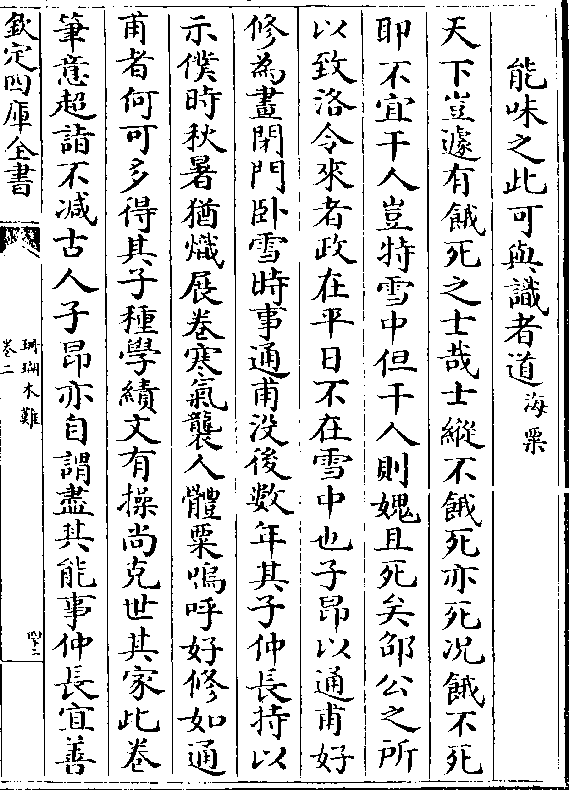 能味之此可與識者道海粟
天下豈遽有餓死之士哉士縱不餓死亦死况餓不死
耶不宜干人豈特雪中但干人則媿且死矣邵公之所
以致洛令來者政在平日不在雪中也子昂以通甫好
修為畫閉門卧雪時事通甫没後数年其子仲長持以
示僕時秋暑猶熾展卷寒氣襲人體粟嗚呼好修如通
甫者何可多得其子種學績文有操尚克世其家此卷
筆意超詣不减古人子昂亦自謂盡其能事仲長宜善
欽定四庫全書
珊瑚木難
卷二
四十二